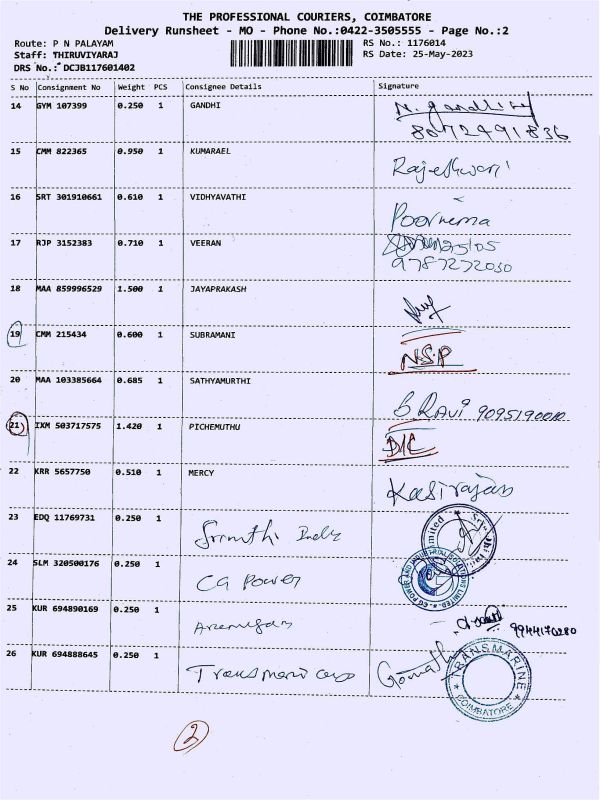 THE PROFESSIONAL COURIERS, COIMBATORE
Delivery Runsheet - MO - Phone No.:0422-3505555 - Page No.:2
Route: P N PALAYAM
RS No.: 1176014
Staff: THIRUVIYARAJ
RS Date: 25-May-2023
DRS No.: DCJB117601402
S No Consignment No Weight PCS Consignee Details Signature
14 GYM 107399 0.250 1 GANDHI N. gandhi
8072491836
15 CMM 822365 0.950 1 KUMARAEL Rajeshwari
16 SRT 301910661 0.610 1 VIDHYAVATHI Poornema
17 RJP 3152383 0.710 1 VEERAN
9787272030
18 MAA 859996529 1.500 1 JAYAPRAKASH
19 CMM 215434 0.600 1 SUBRAMANI NSP
20 MAA 103385664 0.685 1 SATHYAMURTHI B RAVI
21 IXM 503717575 1.420 1 PICHEMUTHU D/L
22 KRR 5657750 0.510 1 MERCY Kasirajan
23 EDQ 11769731 0.250 1
24 SLM 320500176 0.250 1 CG Power
CG POWER AND INDUSTRIAL SOLUTIONS LIMITED
25 KUR 694890169 0.250 1 9944170280
26 KUR 694888645 0.250 1
TRANSMARINE
COIMBATORE
2